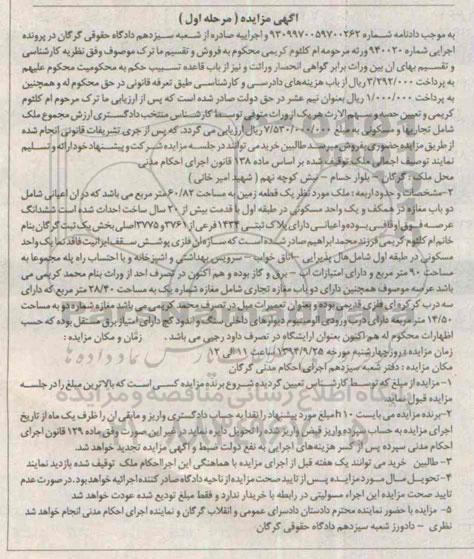 آگهی مزایده ( مرحله اول )
به موجب دادنامه شماره ۹۳۰۹۹۷۰۰۵۹۷۰۰۲۶۲ و اجراییه صادره از شعبه سیزدهم دادگاه حقوقی گرگان در پرونده
اجرایی شماره ۹۴۰۰۲۰ ورثه مرحومه ام کلثوم کریمی محکوم به فروش و تقسیم ما ترک موصوف وفق نظریه کارشناسی
و تقسیم بهای آن بین وراث برابر گواهی انحصار وراثت و نیز از باب قاعده تسبیب حکم به محکومیت محکوم علیهم
به پرداخت ۳/۲۹۲/۰۰۰ ریال از باب هزینه‌های دادرسی و کارشناسی طبق تعرفه قانونی در حق محکوم له و همچنین
به پرداخت ۱/۰۰۰/۰۰۰ ریال بعنوان نیم عشر در حق دولت صادر شده است که پس از ارزیابی ما ترک مرحوم ام کلثوم
کریمی و تعیین حصه و سهم الارث هر یک از وراث متوفی توسط کارشناس منتخب دادگستری ارزش مجموع ملک
شامل تجاریها و مسکونی به مبلغ ۷/۵۳۰/۰۰۰/۰۰۰ ریال ارزیابی می گردد. که پس از جری تشریفات قانونی انجام شده
از طریق مزایده حضوری بفروش میرسد طالبین خرید می توانند در جلسه مزایده شرکت و پیشنهاد خود را ارائه و تسلیم
نمایند توصیف اجمالی ملک توقیف شده بر اساس ماده ۱۳۸ قانون اجرای احکام مدنی
محل ملک : گرگان – بلوار حسام – نبش کوچه نهم ( شهید امیر خانی )
۲-مشخصات و حدود اربعه : ملک مورد نظر یک قطعه زمین به مساحت ۶۰/۸۲ متر مربع می باشد که در آن اعیانی شامل
دو باب مغازه در همکف و یک واحد مسکونی در طبقه اول با قدمت بیش از ۲۰ سال ساخت احداث شده است ششدانگ
عرصه فوق وقافی بوده و اعیانی دارای پلاک ثبتی ۱۳۳۴ فرعی از ۳۷۶۱ و ۳۷۷۵ اصلی بخش یک ثبت گرگان بنام
خانم ام کلثوم کریمی فرزند محمد ابراهیم صادر شده است که سازه ان فلزی پوشش سقف ایرانیت فاقد نما یک واحد
مسکونی در طبقه اول شامل هال پذیرایی – اتاق خواب – سرویس بهداشتی و اشپزخانه و با احتساب راه پله مجموعا به
مساحت ۹۰ متر مربع و دارای امتیازات آب – برق و گاز بوده و هم اکنون در تصرف احد از وراث بنام محمد کریمی می
باشد عرصه موصوف همچنین دارای دو باب مغازه تجاری شامل مغازه شماره یک به مساحت ۲۸/۴۰ متر مربع که دارای
سه درب کرکره ای فلزی قدیمی بوده و بعنوان تعمیرات مبل در تصرف محمد کریمی می باشد مغازه شماره دو به مساحت
۱۴/۵۰ متر مربعه دارای درب ورودی آلومینیوم دیوارهای داخلی سنک و اندود گچ دارای امتیاز برق مستقل بوده که حسب
اظهارات محکوم له هم اکنون بعنوان ارایشگاه در تصرف داود رجبی می باشد. زمان و مکان مزایده :
زمان مزایده : روز چهارشنبه مورخه ۱۳۹۴/۹/۲۵ ساعت ۱۱ الی ۱۲
مکان مزایده : دفتر شعبه سیزدهم اجرای احکام مدنی گرگان
۱-مزایده از مبلغ که توسط کارشناس تعیین گردیده شروع برنده مزایده کسی است که بالاترین مبلغ را در جلسه
مزایده قبول نماید
۲-برنده مزایده می بایست ۱۰% مبلغ مورد پیشنهاد را نقدا به حساب دادگستری واریز و مابقی ان را ظرف یک ماه از تاریخ
اجرای مزایده به حساب سپرده واریز قبض واریز شده را تحویل دایره نماید در غیر این صورت وفق ماده ۱۲۹ قانون اجرای
احکام مدنی سپرده پس از کسر هزینه‌های اجرایی به نفع دولت ضبط و آگهی مزایده تجدید خواهد شد.
۳- طالبین خرید می توانند یک هفته قبل از اجرای مزایده با هماهنگی این اجرا احکام ملک توقیف شده بازدید نمایند
۴-تحویل مال مورد مزایده پس از تایید صحت مزایده از ناحیه دادگاه صادر کننده اجرائیه خواهد بود. در صورت عدم
تایید صحت مزایده این اجراء مسئولیتی در رابطه با خریدار ندارد و فقط مبلغ تودیع شده عودت خواهد شد
۵- مزایده با حضور نماینده محترم دادستان دادسرای عمومی و انقلاب گرگان و نماینده اجرای احکام مدنی انجام خواهد شد
نظری – دادورز شعبه سیزدهم دادگاه حقوقی گرگان